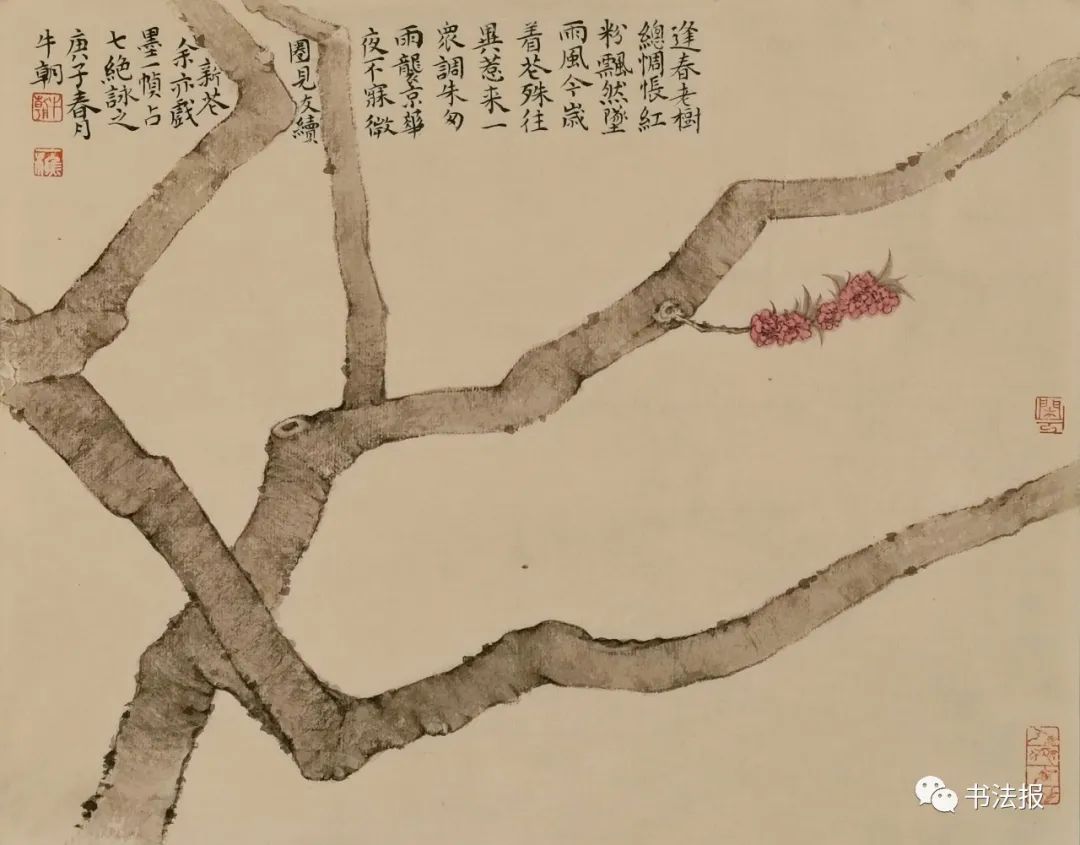 逢春老樹
總惆悵紅
粉飄然墜
雨風今歲
着花殊往
異惹来一
衆調朱匆
雨襲京華
夜不寐微
圈見友續
新花
余亦戲
墨一幀占
七絶詠之
庚子春月
牛朝
书法报